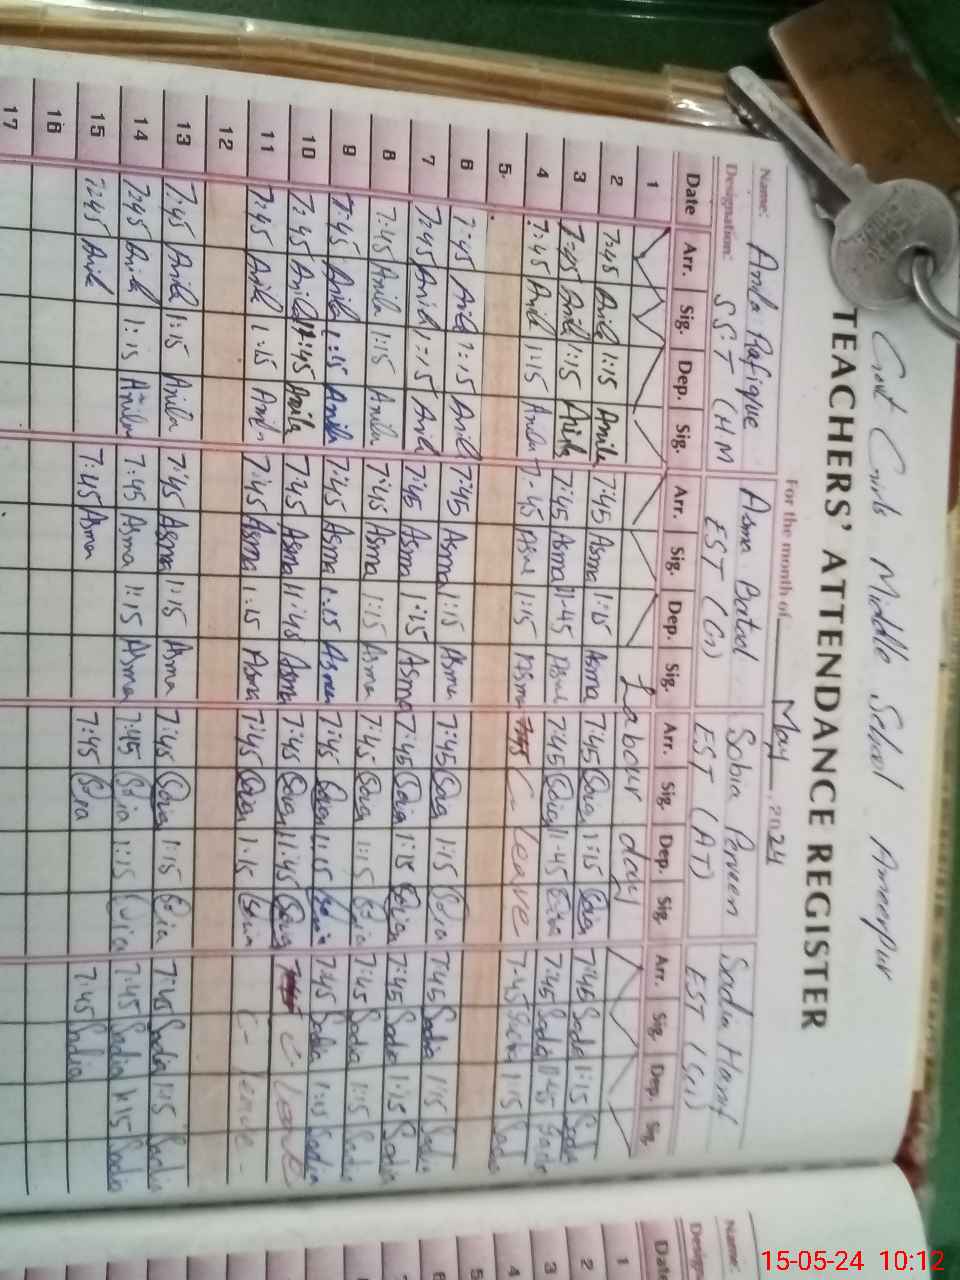 Govt Girls Middle School Ameerpur
TEACHERS' ATTENDANCE REGISTER
For the month of May, 2024
Name: Anila Rafique Asma Sobia Perveen Sadia Hanif
Designation: SST (HM EST (G) EST (AT) EST (Sci)
Date Arr. Sig. Dep. Sig. Arr. Sig. Dep. Sig. Arr. Sig. Dep. Sig. Arr. Sig. Dep. Sig.
1 Labour day
2 7:45 Anila 1:15 Anila 7:45 Asma 1:15 Asma 7:45 Sobia 1:15 Sobia 7:45 Sadia 1:15 Sadia
3 7:45 Anila 1:15 Anila 7:45 Asma 11-45 Asma 7:45 Sobia 11-45 Sobia 7:45 Sadia 11-45 Sadia
4 7:45 Anila 1:15 Anila 7-45 Asma 1:15 Asma C-leave 7-45 Sadia 1:15 Sadia
5
6 7:45 Anila 1:15 Anila 7:45 Asma 1:15 Asma 7:45 Sobia 1:15 Sobia 7:45 Sadia 1:15 Sadia
7 7:45 Anila 1:15 Anila 7:45 Asma 1:15 Asma 7:45 Sobia 1:15 Sobia 7:45 Sadia 1:15 Sadia
8 7:45 Anila 1:15 Anila 7:45 Asma 1:15 Asma 7:45 Sobia 1:15 Sobia 7:45 Sadia 1:15 Sadia
9 7:45 Anila 1:15 Anila 7:45 Asma 1:15 Asma 7:45 Sobia 1:15 Sobia 7:45 Sadia 1:15 Sadia
10 7:45 Anila 11:45 Anila 7:45 Asma 11:45 Asma 7:45 Sobia 11:45 Sobia C-Leave
11 7:45 Anila 1:15 Anila 7:45 Asma 1:15 Asma 7:45 Sobia 1:15 Sobia C-leave-
12
13 7:45 Anila 1:15 Anila 7:45 Asma 1:15 Asma 7:45 Sobia 1:15 Sobia 7:45 Sadia 1:15 Sadia
14 7:45 Anila 1:15 Anila 7:45 Asma 1:15 Asma 7:45 Sobia 1:15 Sobia 7:45 Sadia 1:15 Sadia
15 7:45 Anila 7:45 Asma 7:45 Sobia 7:45 Sadia
16
17
Name:
Desig
Date
1
2
3
4
5
6
7
8
9
10
11
12
13
15-05-24 10:12